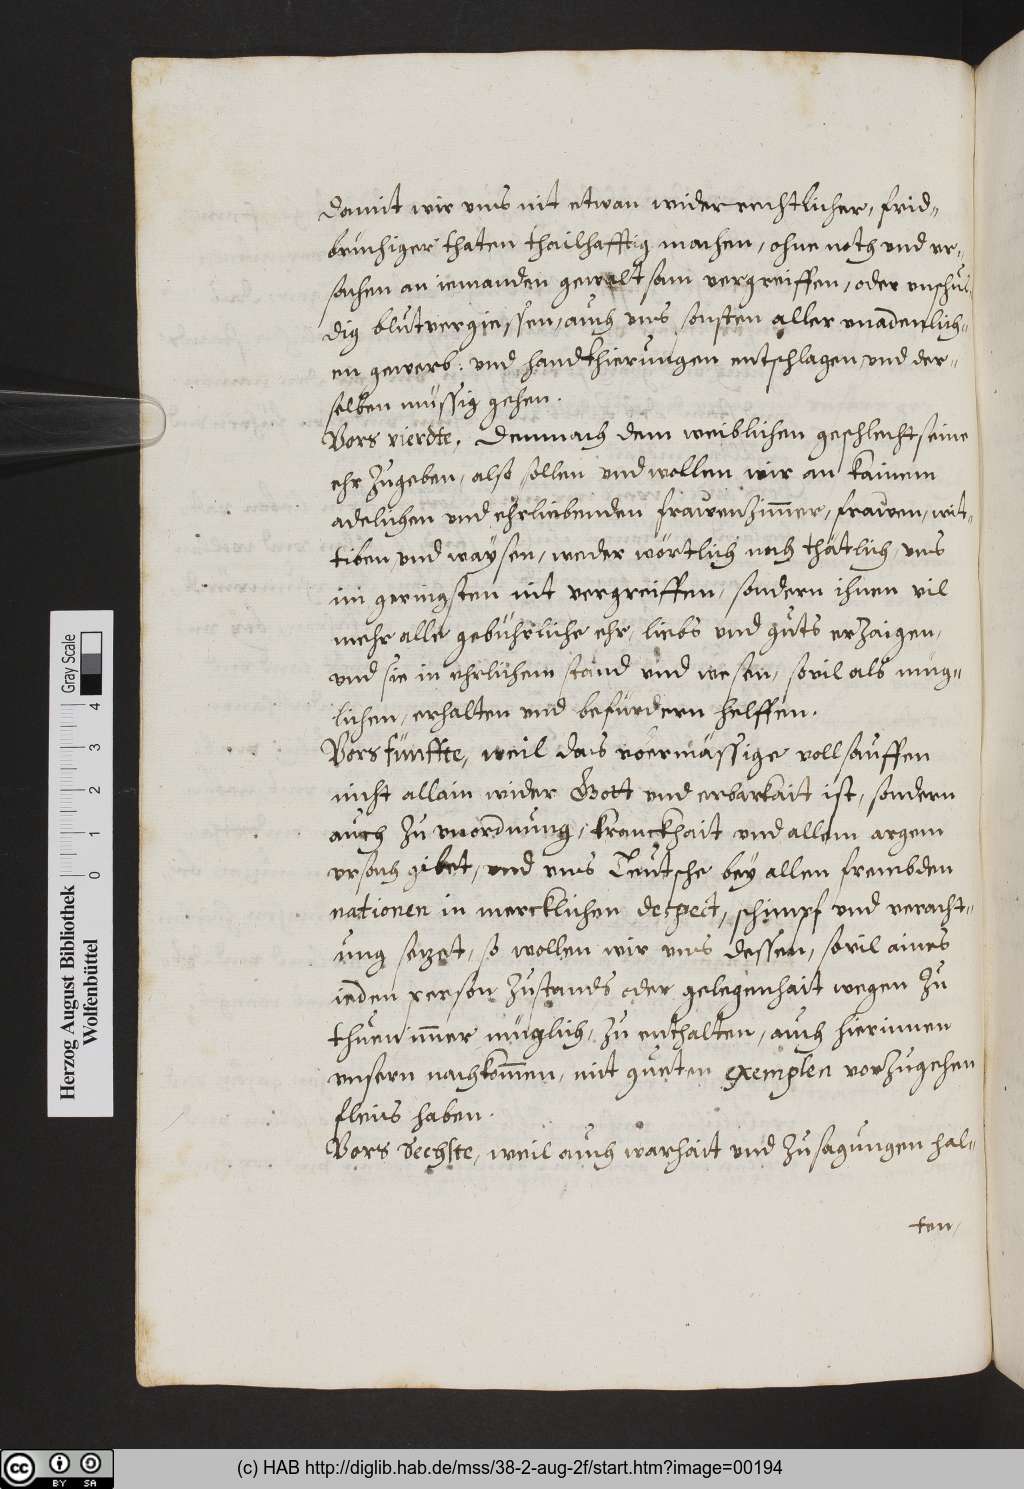 damit wir vns nit etwan widerrechtlicher, frid-
bruchiger thaten thailhafftig machen, ohne noth vnd vr-
sachen an iemanden gewaltsam vergreiffen, oder vnschul
dig blutvergiessen, auch vns sonsten aller vnadenlich-
en gewerb: vnd handthierungen entschlagen, vnd der-
selben müssig gehen.
Vors vierdte, Demnach dem weiblichen geschlecht seine
ehr zugeben, also sollen vnd wollen wir an kainem
adelichen vnd ehrliebenden frawenzimmer, frawen, wit-
tiben, vnd waÿsen, weder wörtlich noch thätlich, vns
im geringsten nit vergreiffen, sondern ihnen vil
mehr alle gebührliche ehr, liebs vnd guts erzaigen,
vnd sie in ehrlichem stand vnd wesen, sovil als müg-
lichen, erhalten vnd befürdern helffen.
Vors fünffte, weil das vbermässige vollsauffen
nicht allain wider Gott vnd erbarkait ist, sondern
auch zu vnordnung, kranckhait vnd allem argem
vrsach gibet, vnd vns Teutsche beÿ allen frembden
nationen in mercklichen despect, schimpf vnd veracht-
ung sezet, so wollen wir vns dessen, sovil aines
ieden person zustands oder gelegenhait wegen zu
thuen immer müglich, zu enthalten, auch hierinnen
vnsern nachkommen, mit gueten exemplen vorzugehen
fleiss haben.
Vors Sechste, weil auch warhait vnd zusagungen hal-
ten,
Herzog August Bibliothek
Wolfenbüttel
0 1 2 3 4
Gray Scale
cc BY SA
(c) HAB http://diglib.hab.de/mss/38-2-aug-2f/start.htm?image=00194